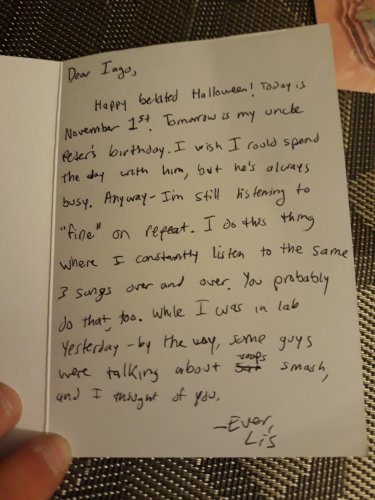 Dear Iago,
Happy belated Halloween! Today is
November 1st. Tomorrow is my uncle
Peter's birthday. I wish I could spend
the day with him, but he's always
busy. Anyway - I'm still listening to
"fine" on repeat. I do this thing
where I constantly listen to the same
3 songs over and over. You probably
do that, too. While I was in lab
yesterday - by the way, some guys
were talking about oops smash,
and I thought of you.
-Ever,
Lis